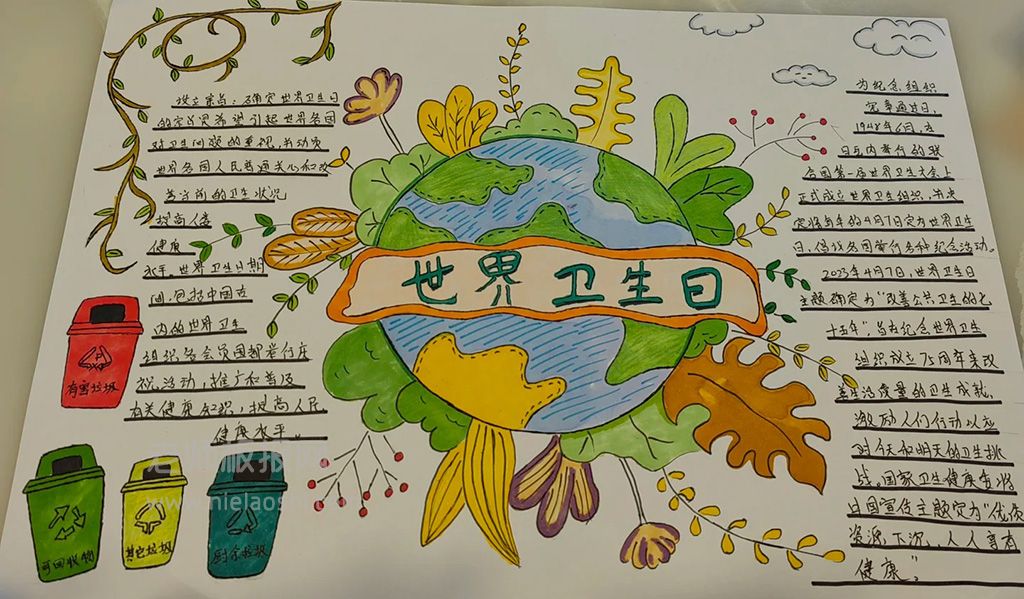 世界卫生日
设立宗旨：确定世界卫生日
的宗旨是希望引起世界各国
对卫生问题的重视，并动员
世界各国人民普遍关心和改
善当前的卫生状况
提高人类
健康
水平。世界卫生日期
间，包括中国在
内的世界卫生
组织各会员国都举行庆
祝活动，推广和普及
有关健康知识，提高人民
健康水平。
有害垃圾
可回收物
其它垃圾
厨余垃圾
为纪念组织
宪章通过日，
1948年6月，在
日瓦内举行的联
合国第一届世界卫生大会上
正式成立世界卫生组织，并决
定将每年的4月7日定为世界卫生
日，倡议各国举行各种纪念活动。
2023年4月7日，世界卫生日
主题确定为“改善公共卫生的七
十五年”旨在纪念世界卫生
组织成立75周年来改
善生活质量的卫生成就，
激励人们行动以应
对今天和明天的卫生挑
战。国家卫生健康委将
日国宣传主题定为“优质
资源下沉，人人享有
健康”。
老师板报网
www.nielaoshi